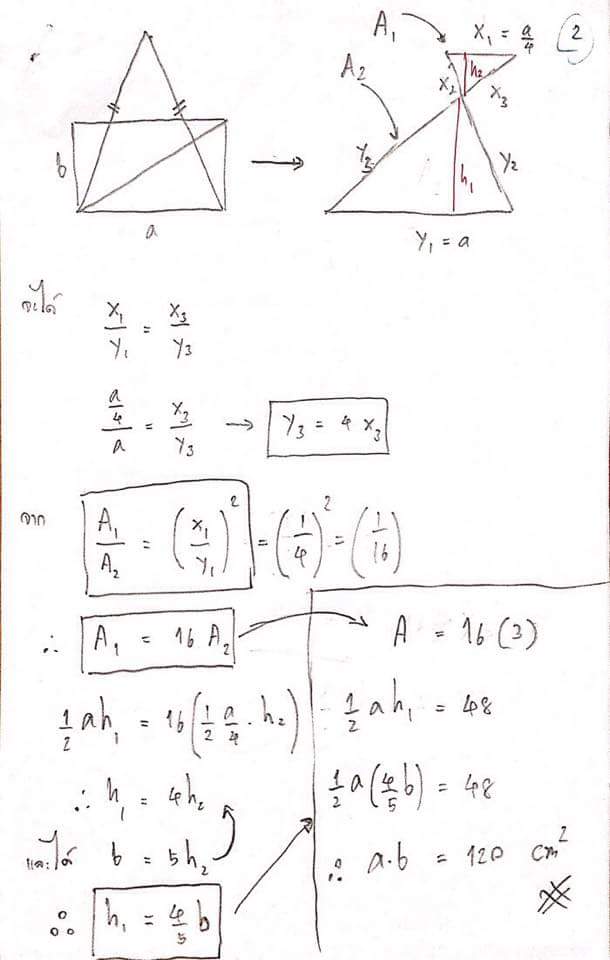 2
A₁
x₁ = a/4
h₂
A₂
x₂
x₃
b
y₃
y₂
h₁
a
y₁ = a
จะได้
x₁/y₁ = x₃/y₃
(a/4)/a = x₃/y₃ → y₃ = 4 x₃
จาก A₁/A₂ = (x₁/y₁)² = (1/4)² = (1/16)
∴ A₁ = 16 A₂
1/2 ah₁ = 16(1/2 a/4 · h₂)
∴ h₁ = 4h₂
และได้ b = 5h₂
∴ h₁ = 4/5 b
A = 16(3)
1/2 a h₁ = 48
1/2 a(4/5 b) = 48
∴ a·b = 120 cm²